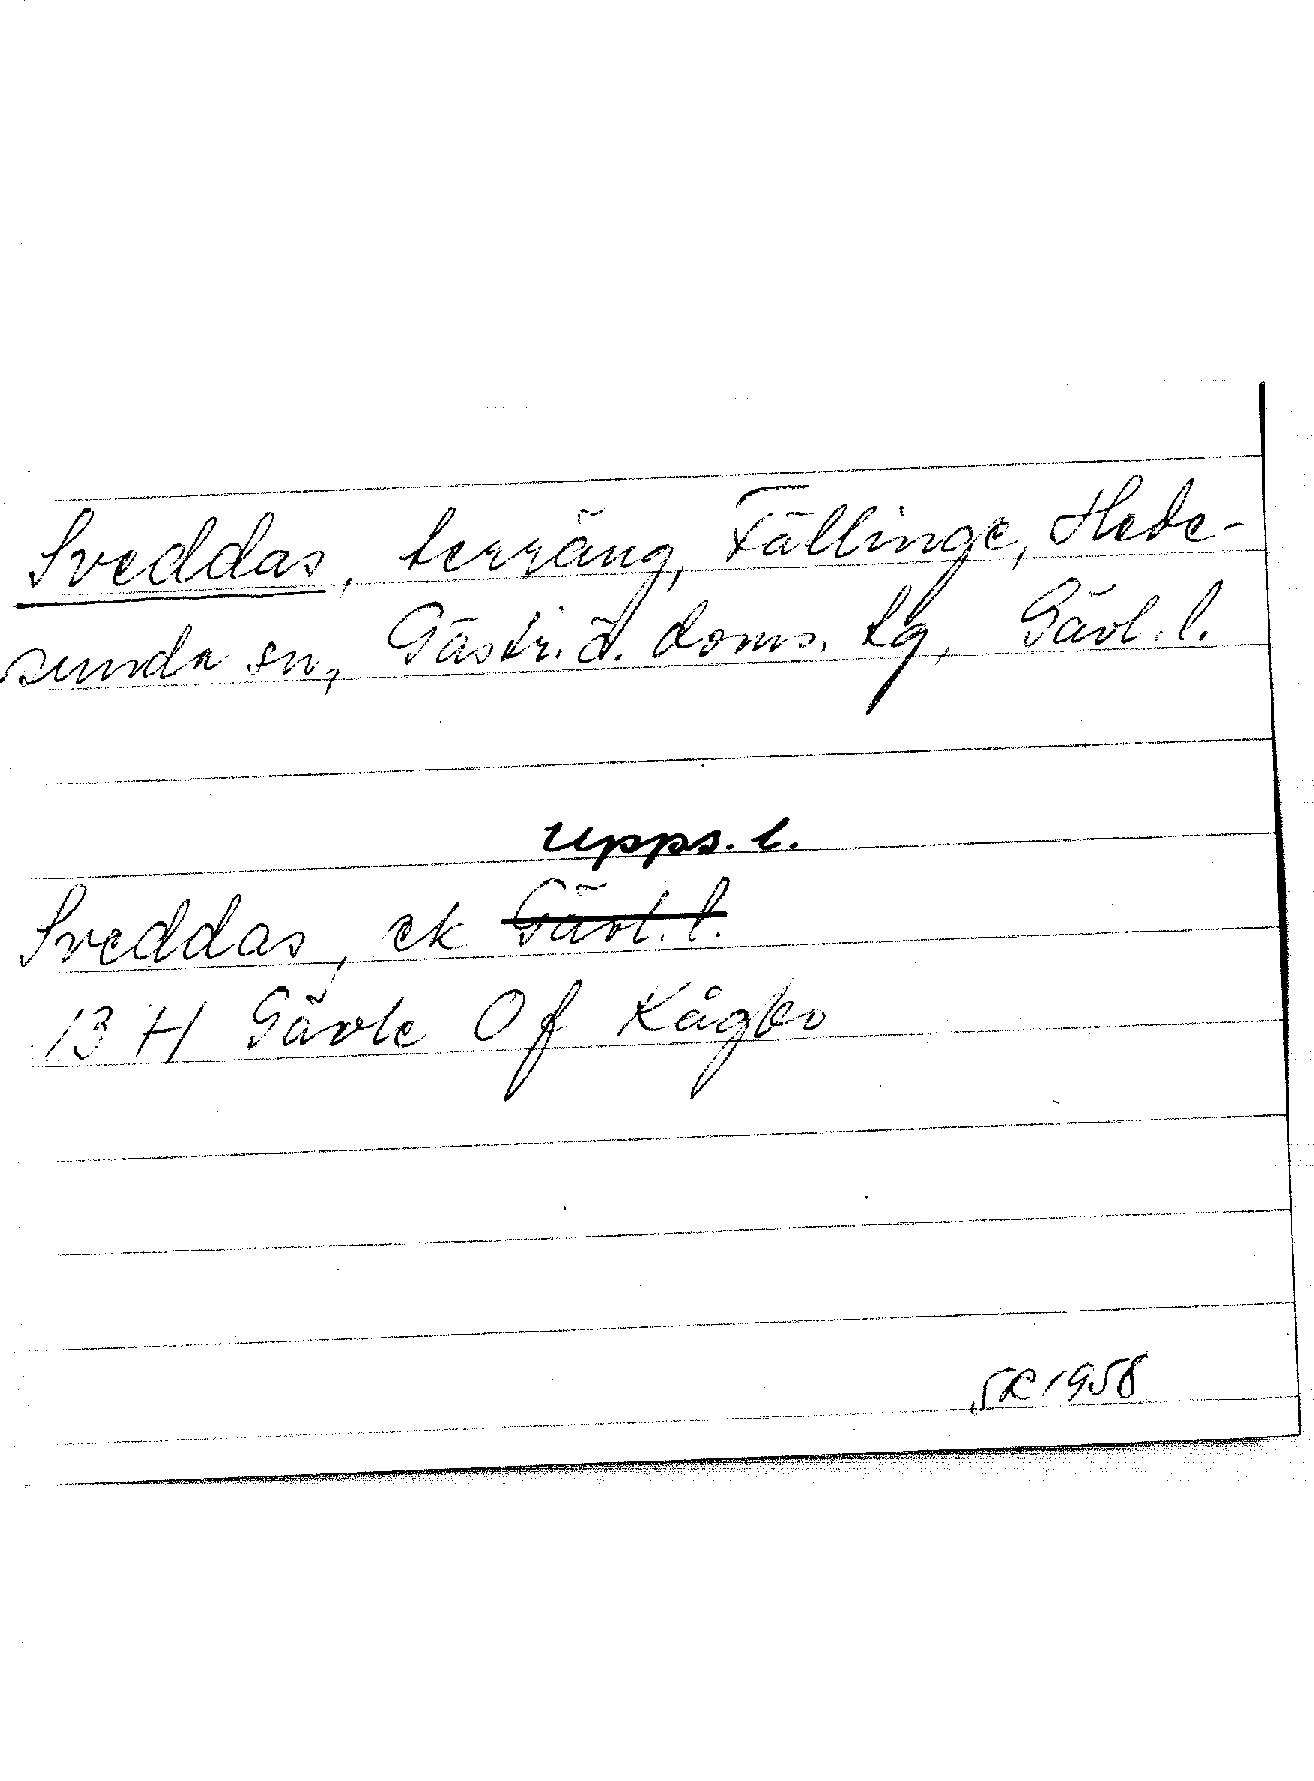 Sveddas, terräng, Fällinge, Hede-
sunda sn, Gästr.ö. doms. tg, Gävl. l.
Upps. l.
Sveddas, ek Gävl. l.
13 H Gävle 0f Kågbo
SR 1958